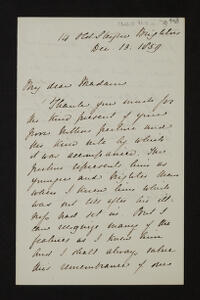 14 Old Steyne Brighton
Dec 13. 1859
My dear Madam
Thank you much for
the kind present of your
good father's picture and
the kind note by which
it was accompanied. The
picture represents him as
younger and brighter than
when I knew him which
was not till after his ill-
ness had set in. But I
can recognise many of the
features as I knew them
and I shall always value
this remembrance of one